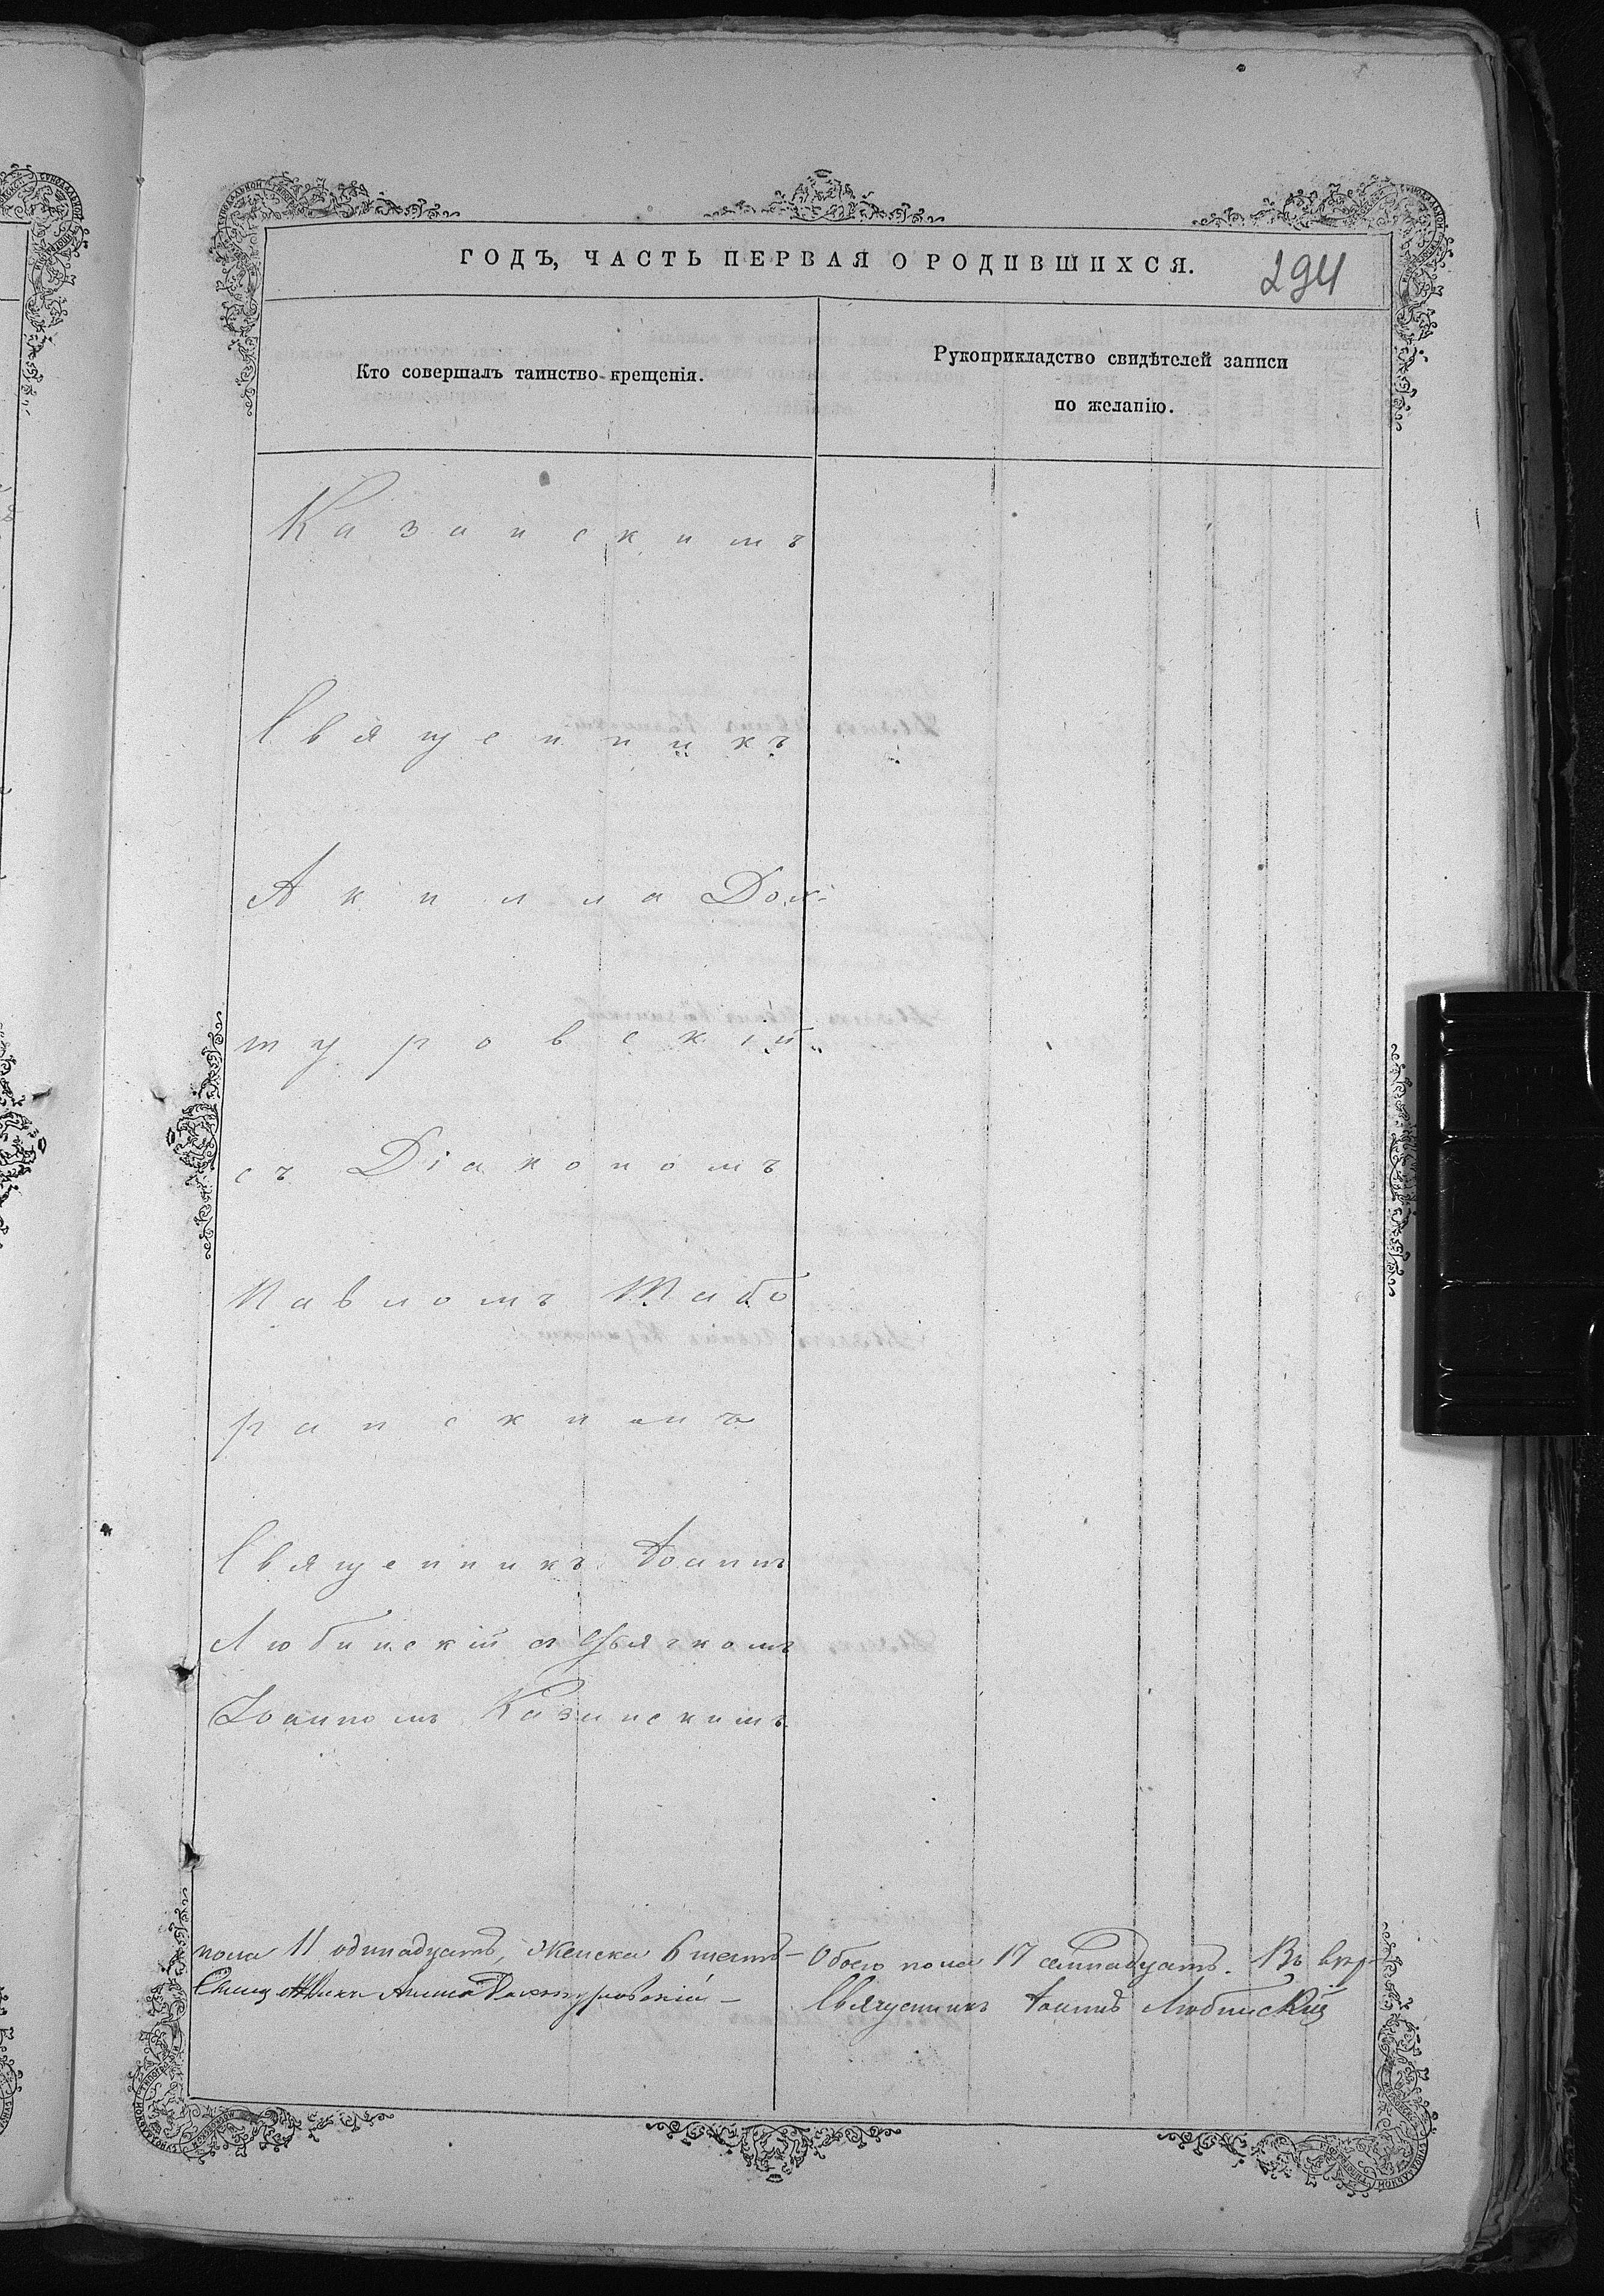 ГОДЪ, ЧАСТЬ ПЕРВАЯ О РОДИВШИХСЯ.
294
Кто совершалъ таинство крещенія.
Рукоприкладство свидѣтелей записи
по желанію.
Казанскимъ
Священникъ
Акила Док-
туровскій
съ Діакономъ
Павломъ Табо
ранскимъ
Священникъ Іоаннъ
Любинскій съ Дьячкомъ
Іоанномъ Казанскимъ
пола 11 одинадцать, женска 6 шесть-
Обоего пола 17 семнадцать. Въ вѣр-
Доктуровскій
Священникъ Іоаннъ Любинскій